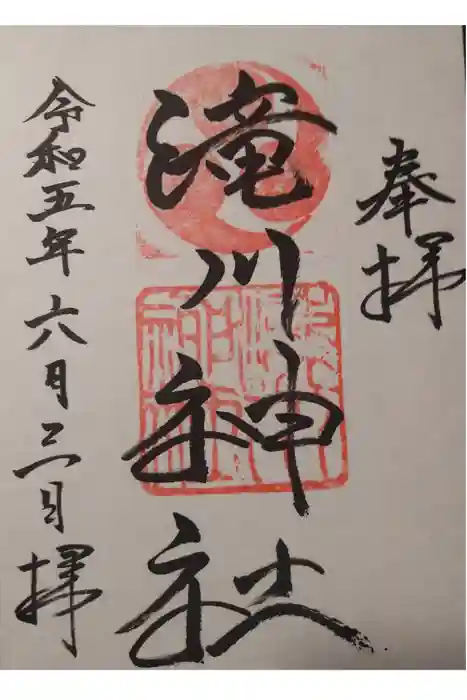 奉拝
滝川神社
令和五年六月三日拝